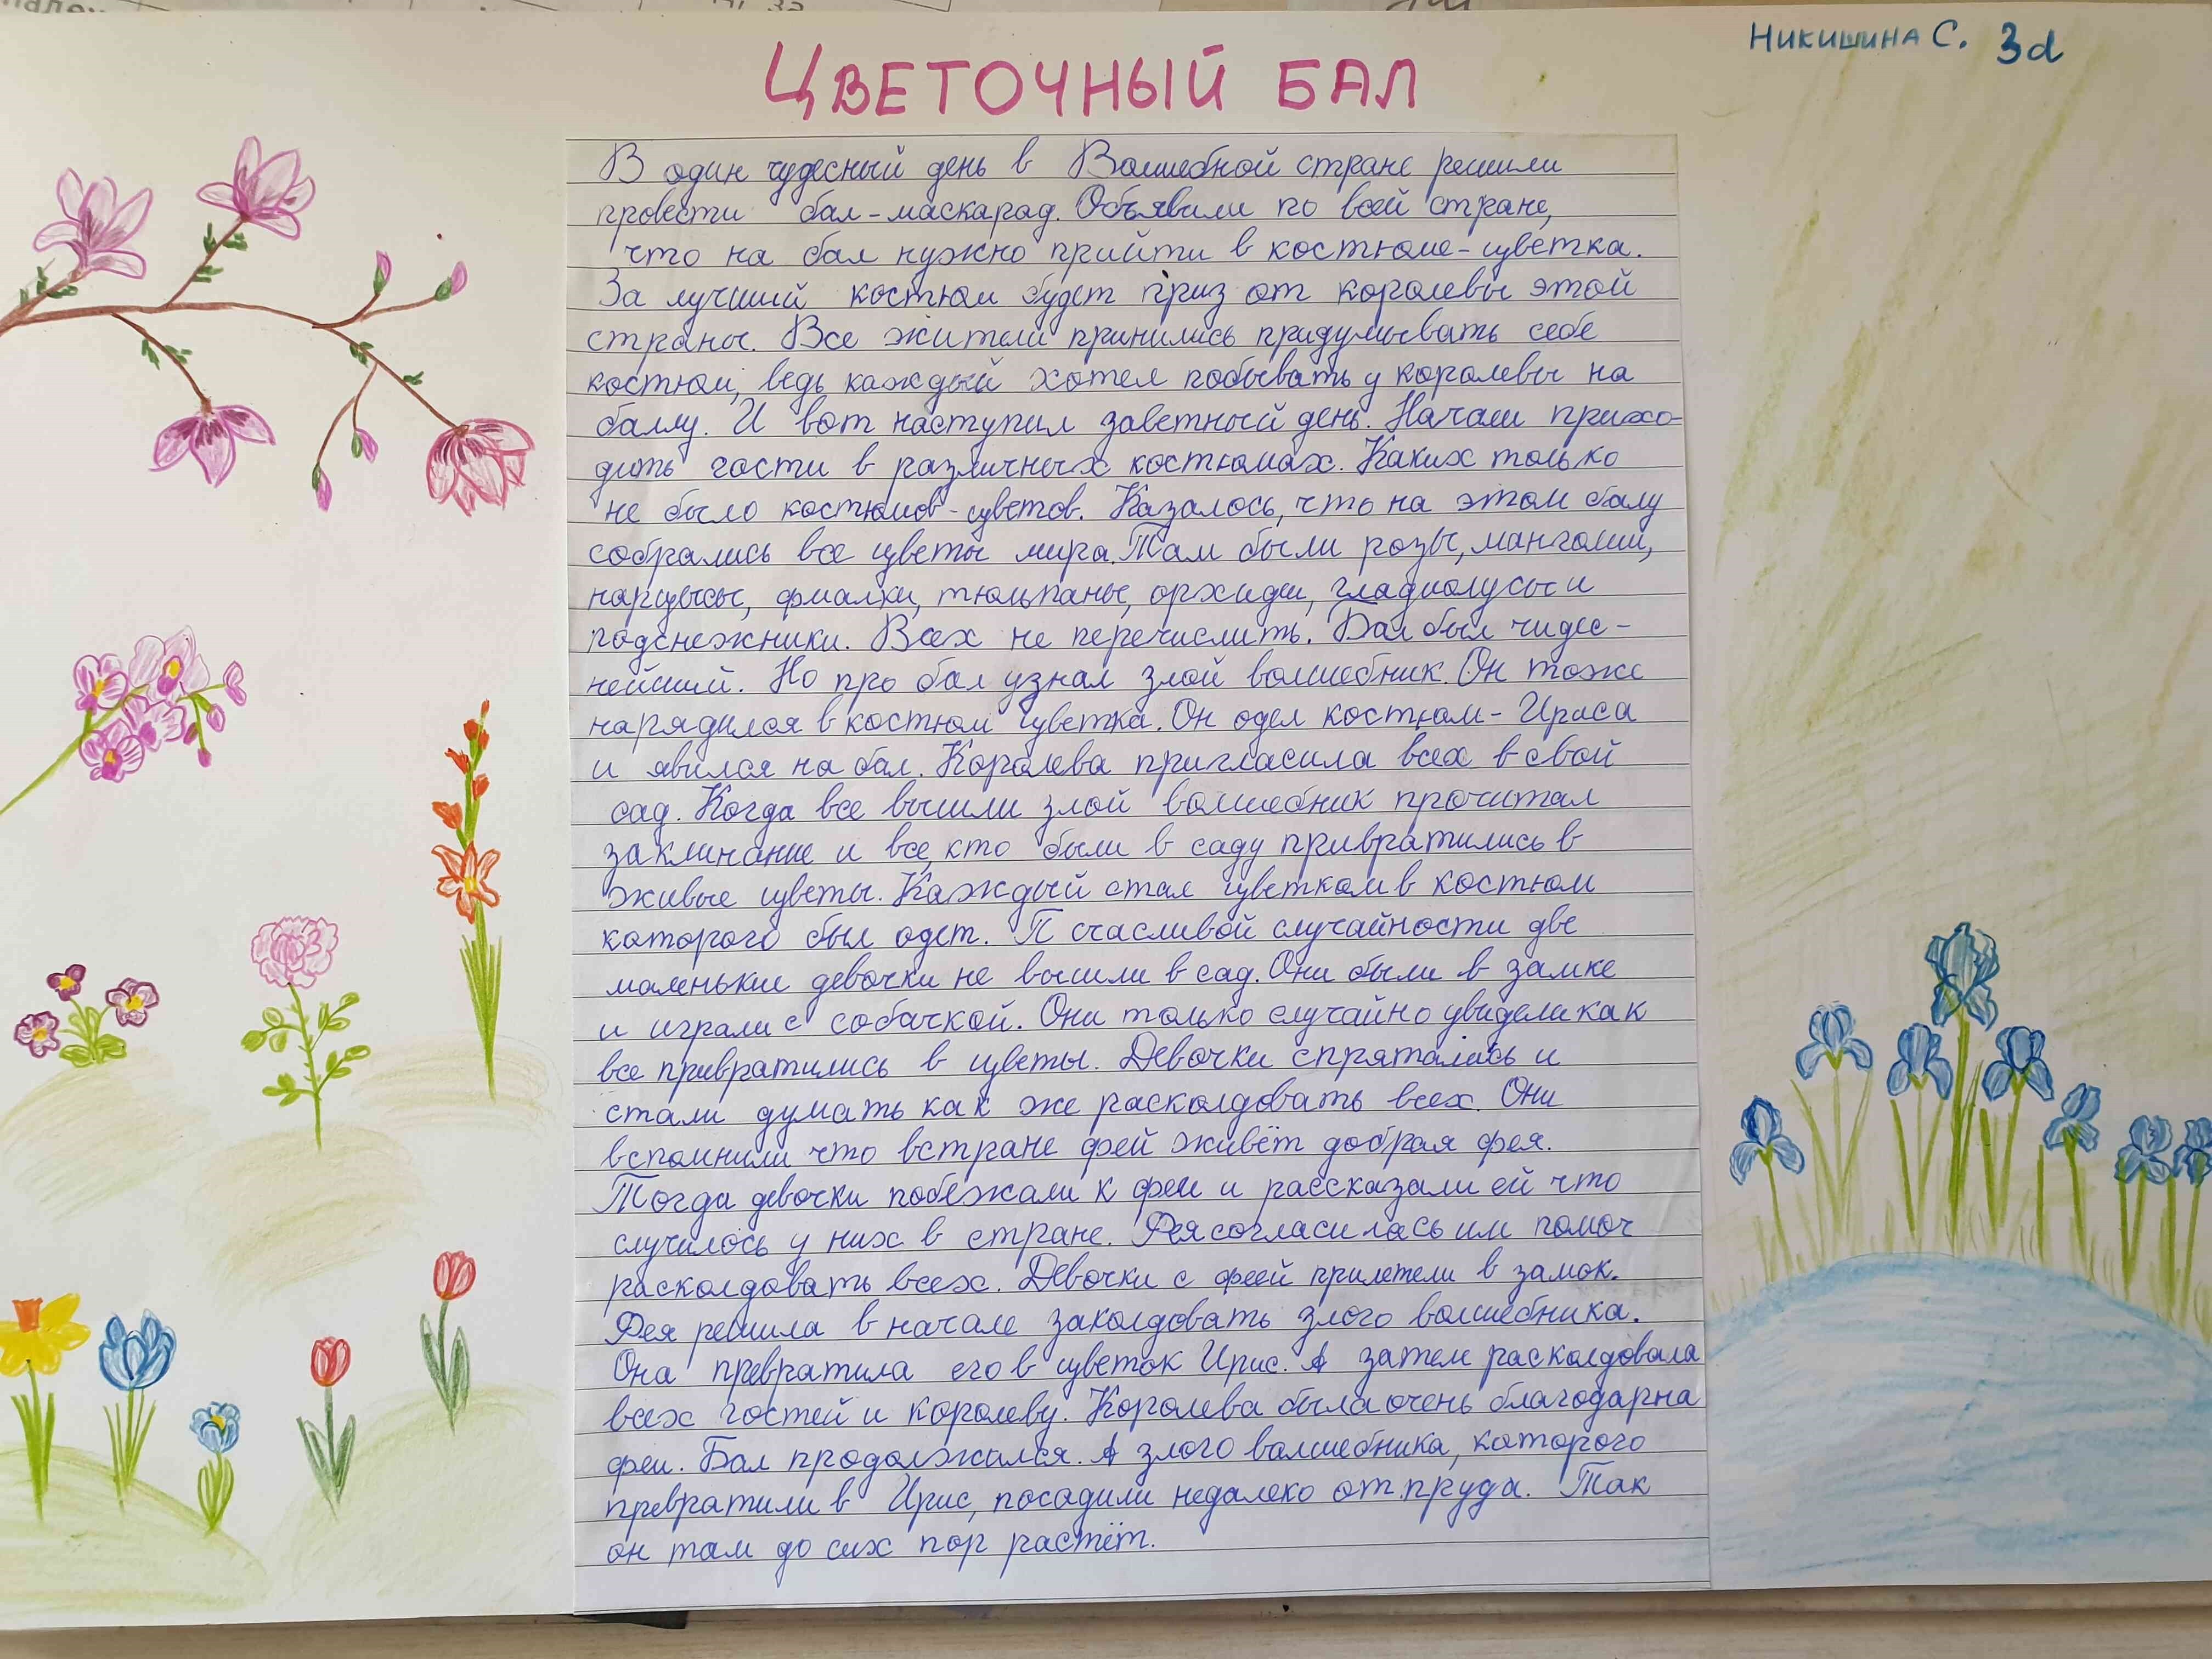 Никишина С. 3d
Цветочный бал
В один чудесный день в Волшебной стране решили
провести бал-маскарад. Объявили по всей стране,
что на бал нужно прийти в костюме-цветка.
За лучший костюм будет приз от королевы этой
страны. Все жители принились придумывать себе
костюм, ведь каждый хотел побывать у королевы на
баллу. И вот наступил заветный день. Начали прихо-
дить гости в различных костюмах. Каких только
не было костюмов-цветов. Казалось, что на этом балу
собрались все цветы мира. Там были розы, манголии,
нарцысы, фиалки, тюльпаны, орхидеи, гладиолусы и
подснежники. Всех не перечислить. Бал был чидес-
нейший. Но про бал узнал злой волшебник. Он тоже
нарядился в костюм цветка. Он одел костюм-Ириса
и явился на бал. Королева пригласила всех в свой
сад. Когда все вышли злой волшебник прочитал
заклинание и все, кто были в саду привратились в
живые цветы. Каждый стал цветком в костюм
которого был одет. П счасливой случайности две
маленькие девочки не вышли в сад. Они были в замке
и играли с собачкой. Они только случайно увидели как
все привратились в цветы. Девочки спрятались и
стали думать как же расколдовать всех. Они
вспомнили что в стране фей живёт добрая фея.
Тогда девочки побежали к феи и рассказали ей что
случилось у них в стране. Фея согласилась им помоч
расколдовать всех. Девочки с феей прилетели в замок.
Фея решила в начале заколдовать злого волшебника.
Она превратила его в цветок Ирис. А затем расколдовала
всех гостей и королеву. Королева была очень благодарна
феи. Бал продолжался. А злого валшебника, которого
превратили в Ирис, посадили недалеко от пруда. Так
он там до сих пор растёт.